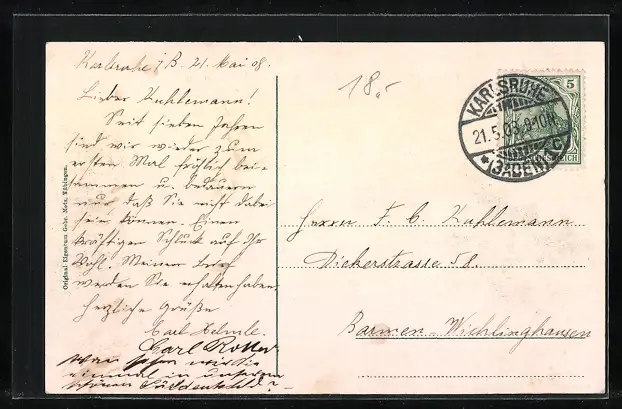 Karlsruhe i/B. 21. Mai 08.
Lieber Kuhlemann!
Seit sieben Jahren
sind wir wieder zum
ersten Mal fröhlich bei-
sammen u. bedauern
nur daß Sie nicht dabei
sein können. Einen
kräftigen Schluck auf Ihr
Wohl. Meinen Brief
werden Sie erhalten haben.
Herzliche Grüße
Carl
Carl
wir die
einmal in unserem
schönen
Original-Eigentum Gebr. Metz, Tübingen.
18.-
KARLSRUHE
21.5.08.9-10N.
*(BADEN). C
5
REICH
Herrn F. C. Kuhlemann
Dickerstrasse 58.
Barmen-Wichlinghausen